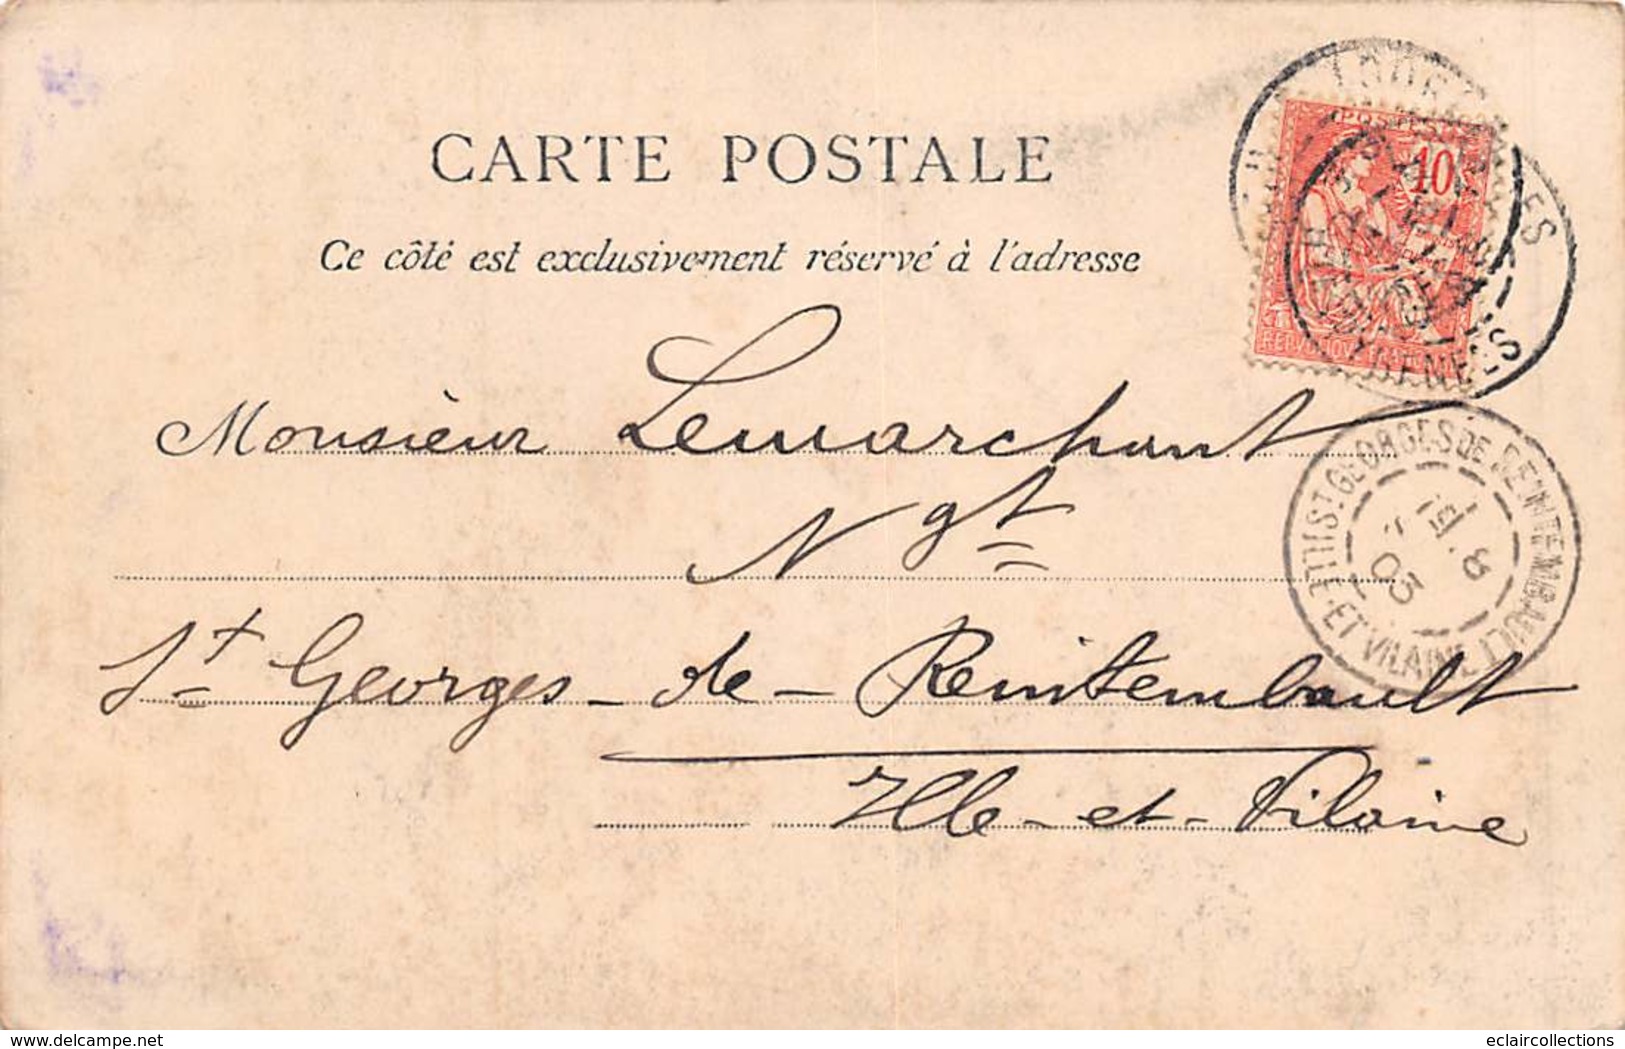 CARTE POSTALE
Ce côté est exclusivement réservé à l'adresse
POSTES
10
Monsieur Lemarchant
Ngt
St Georges-de-Reintembault
Ille-et-Vilaine
ST GEORGES DE REINTEMBAULT
ILLE-ET-VILAINE
8
03
eclaircollections
www.delcampe.net